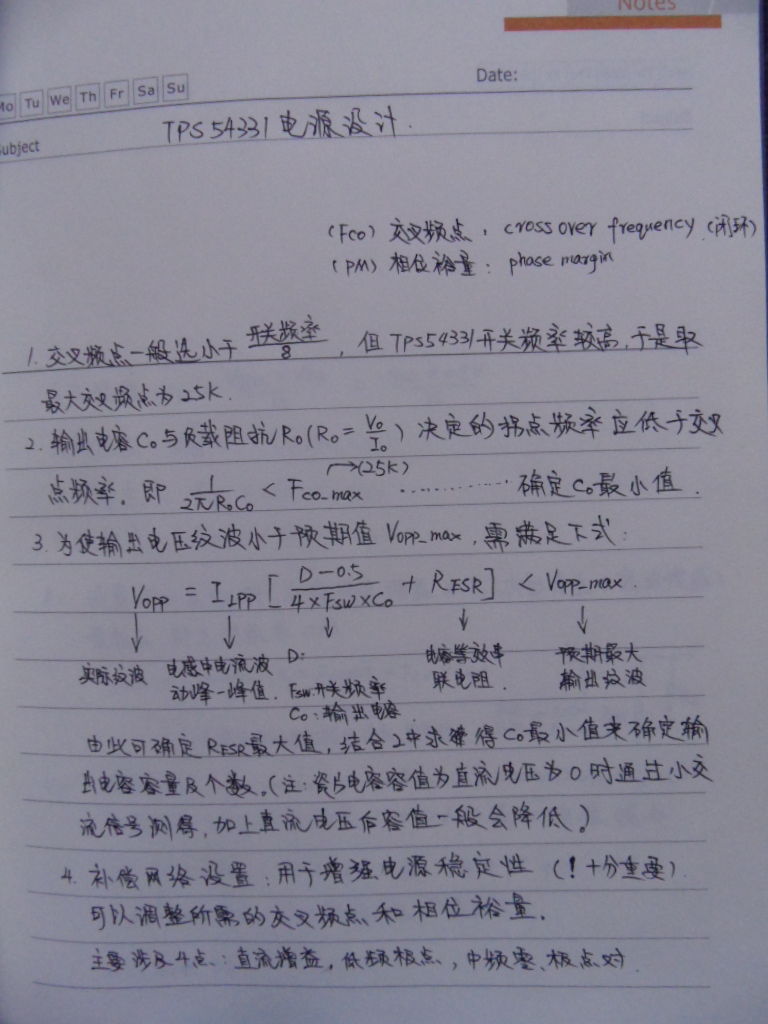 Notes
Mo Tu We Th Fr Sa Su
Date:
Subject
TPS54331电源设计.
(Fco) 交叉频点: cross over frequency (闭环)
(PM) 相位裕量: phase margin
1. 交叉频点一般选小于 开关频率/8, 但TPS54331开关频率较高,于是取
最大交叉频点为25K.
2. 输出电容Co与负载阻抗Ro(Ro = Vo/Io) 决定的拐点频率应低于交叉
点频率. 即 1/2πRoCo < Fco_max →(25K) ············ 确定Co最小值.
3. 为使输出电压纹波小于预期值 Vopp_max, 需满足下式:
Vopp = ILPP [ D-0.5/4×Fsw×Co + RESR ] < Vopp_max.
实际纹波 电感中电流波 D: 电容等效串 预期最大
动峰-峰值. Fsw:开关频率 联电阻. 输出纹波
Co:输出电容.
由此可确定RESR最大值, 结合2中求得Co最小值来确定输
出电容容量及个数.(注: 瓷片电容容值为直流电压为0时通过小交
流信号测得, 加上直流电压后容值一般会降低.)
4. 补偿网络设置: 用于增强电源稳定性 (! 十分重要)
可以调整所需的交叉频点和相位裕量.
主要涉及4点: 直流增益, 低频极点, 中频零、极点对.